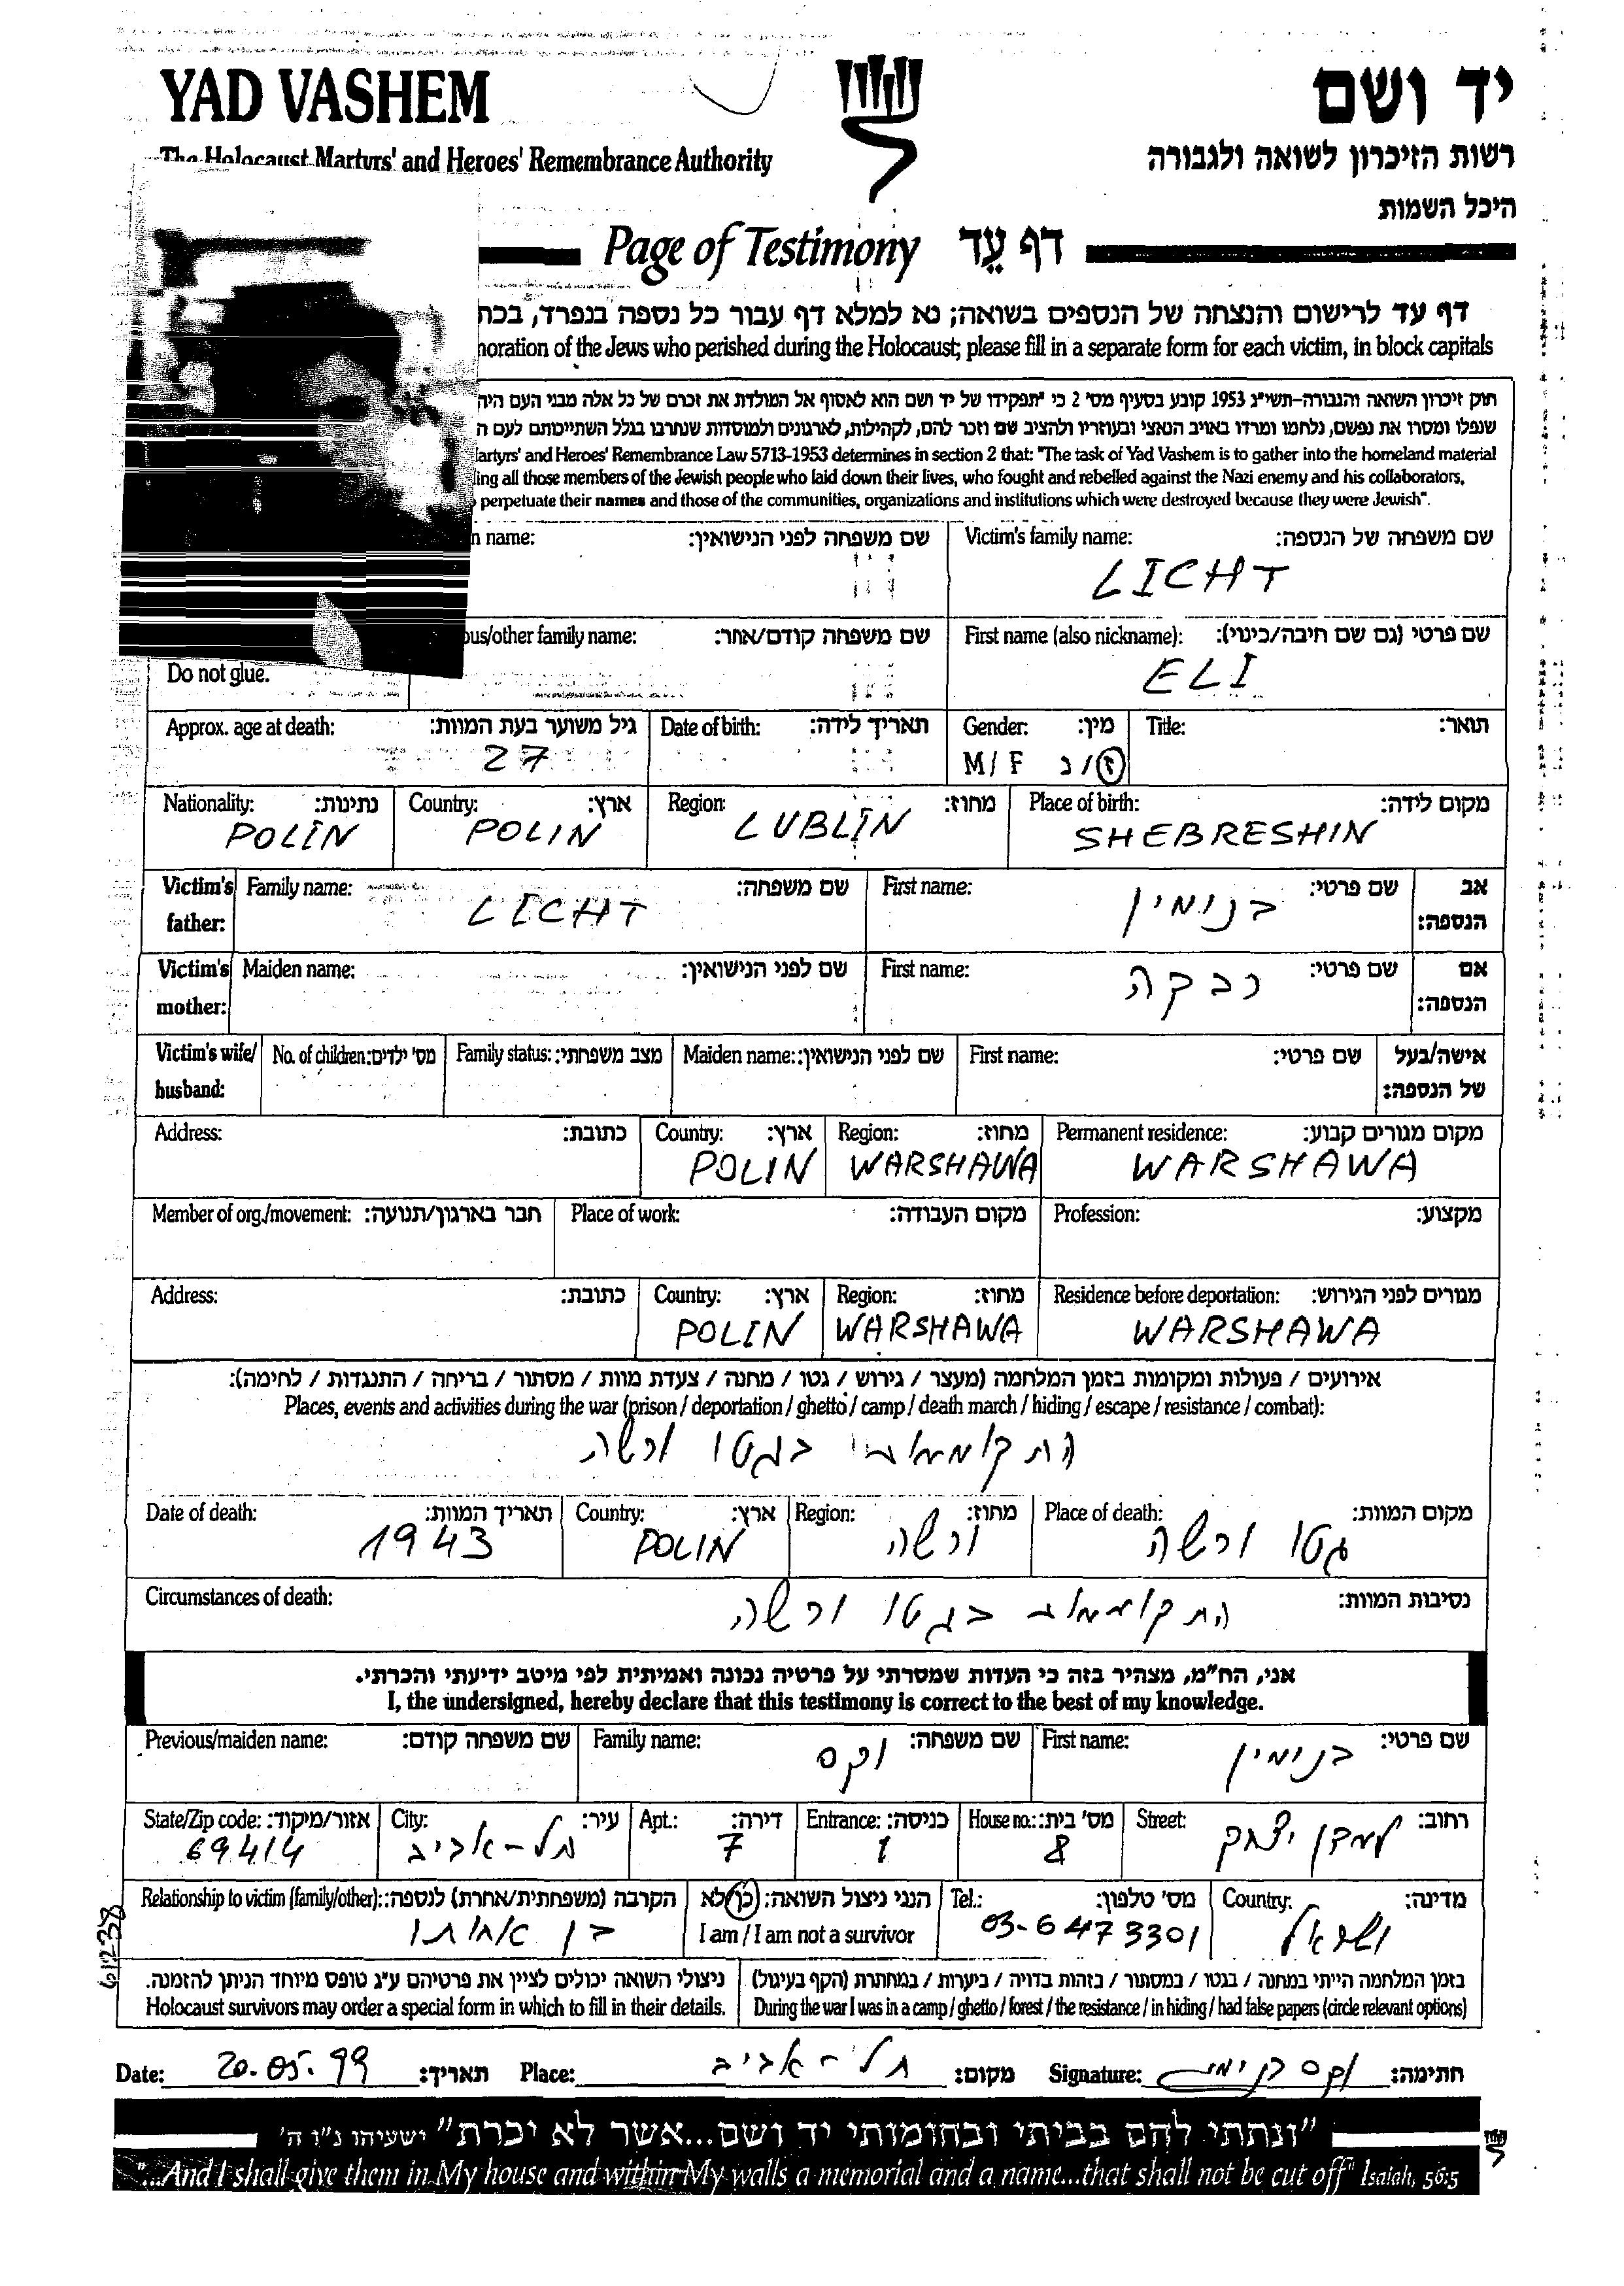 YAD VASHEM
יד ושם
The Holocaust Martyrs' and Heroes' Remembrance Authority
רשות הזיכרון לשואה ולגבורה
היכל השמות
Page of Testimony דף עֵד
דף עד לרישום והנצחה של הנספים בשואה; נא למלא דף עבור כל נספה בנפרד, בכת
noration of the Jews who perished during the Holocaust; please fill in a separate form for each victim, in block capitals
חוק זיכרון השואה והגבורה-תשי"ג 1953 קובע בסעיף מס' 2 כי "תפקידו של יד ושם הוא לאסוף אל המולדת את זכרם של כל אלה מבני העם היה
שנפלו ומסרו את נפשם, נלחמו ומרדו באויב הנאצי ובעוזריו ולהציב שם וזכר להם, לקהילות, לארגונים ולמוסדות שנחרבו בגלל השתייכותם לעם ה
artyrs' and Heroes' Remembrance Law 5713-1953 determines in section 2 that: "The task of Yad Vashem is to gather into the homeland material
ing all those members of the Jewish people who laid down their lives, who fought and rebelled against the Nazi enemy and his collaborators,
perpetuate their names and those of the communities, organizations and institutions which were destroyed because they were Jewish".
n name: שם משפחה לפני הנישואין: Victim's family name: שם משפחה של הנספה:
LICHT
ous/other family name: שם משפחה קודם/אחר: First name (also nickname): שם פרטי (גם שם חיבה/כינוי):
ELI
Do not glue.
Approx. age at death: גיל משוער בעת המוות: Date of birth: תאריך לידה: Gender: מין: Title: תואר:
27 M/F ז/נ
Nationality: נתינות: Country: ארץ: Region: מחוז: Place of birth: מקום לידה:
POLIN POLIN LUBLIN SHEBRESHIN
Victim's father: Family name: שם משפחה: First name: שם פרטי: אב הנספה:
LICHT בנימין
Victim's mother: Maiden name: שם לפני הנישואין: First name: שם פרטי: אם הנספה:
רבקה
Victim's wife/ husband: No. of children: מס' ילדים: Family status: מצב משפחתי: Maiden name: שם לפני הנישואין: First name: שם פרטי: אישה/בעל של הנספה:
Address: כתובת: Country: ארץ: Region: מחוז: Permanent residence: מקום מגורים קבוע:
POLIN WARSHAWA WARSHAWA
Member of org./movement: חבר בארגון/תנועה: Place of work: מקום העבודה: Profession: מקצוע:
Address: כתובת: Country: ארץ: Region: מחוז: Residence before deportation: מגורים לפני הגירוש:
POLIN WARSHAWA WARSHAWA
אירועים / פעולות ומקומות בזמן המלחמה (מעצר / גירוש / גטו / מחנה / צעדת מוות / מסתור / בריחה / התנגדות / לחימה):
Places, events and activities during the war (prison / deportation / ghetto / camp / death march / hiding / escape / resistance / combat):
בגטו ורשה
Date of death: תאריך המוות: Country: ארץ: Region: מחוז: Place of death: מקום המוות:
1943 POLIN ורשה גטו ורשה
Circumstances of death: נסיבות המוות:
בגטו ורשה
אני, הח"מ, מצהיר בזה כי העדות שמסרתי על פרטיה נכונה ואמיתית לפי מיטב ידיעתי והכרתי.
I, the undersigned, hereby declare that this testimony is correct to the best of my knowledge.
Previous/maiden name: שם משפחה קודם: Family name: שם משפחה: First name: שם פרטי:
וקס בנימין
State/Zip code: אזור/מיקוד: City: עיר: Apt.: דירה: Entrance: כניסה: House no.: מס' בית: Street: רחוב:
69414 תל-אביב 7 1 8 למדן יצחק
Relationship to victim (family/other): הקרבה (משפחתית/אחרת) לנספה: הנני ניצול השואה: כן/לא Tel.: מס' טלפון: Country: מדינה:
בן אחותו I am / I am not a survivor 03-6473301 ישראל
ניצולי השואה יכולים לציין את פרטיהם ע"ג טופס מיוחד הניתן להזמנה. בזמן המלחמה הייתי במחנה / בגטו / במסתור / בזהות בדויה / ביערות / במחתרת (הקף בעיגול)
Holocaust survivors may order a special form in which to fill in their details. During the war I was in a camp / ghetto / forest / the resistance / in hiding / had false papers (circle relevant options)
Date: 20.05.99 תאריך: Place: תל-אביב מקום: Signature: וקס בנימין חתימה:
"ונתתי להם בביתי ובחומותי יד ושם...אשר לא יכרת" ישעיהו נ"ו ה'
"...And I shall give them in My house and within My walls a memorial and a name...that shall not be cut off" Isaiah, 56:5